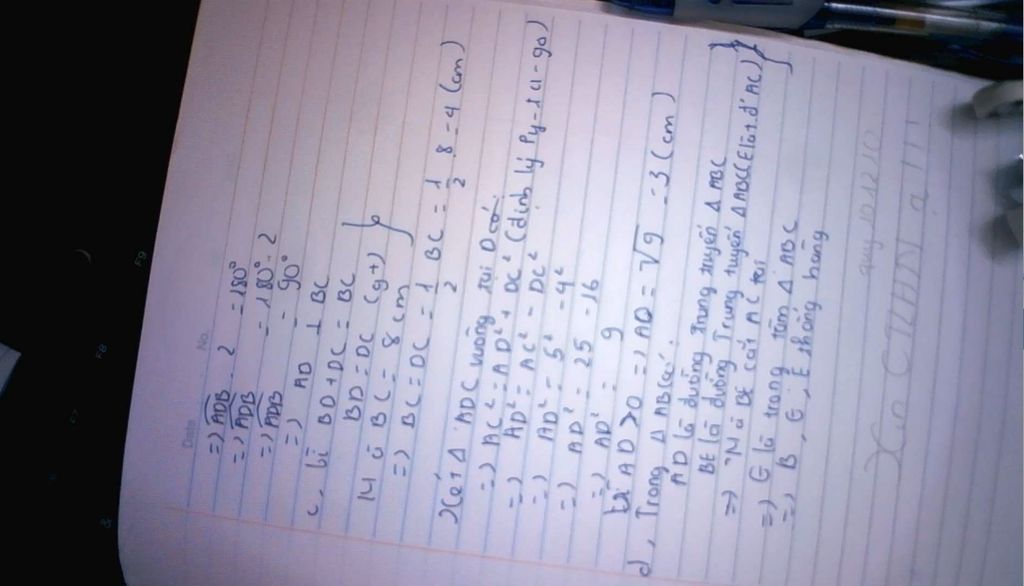 Date No.
=) ADB . 2 = 180°
=) ADB = 180° : 2
=) ADB = 90°
=) AD ⊥ BC
c, Vì BD + DC = BC
BD = DC (gt)
Mà BC = 8 cm
=) BC = DC = 1/2 BC = 1/2 8 = 4 (cm)
Xét Δ ADC vuông tại D có
=) AC² = AD² + DC² (định lý Py-ta-go)
=) AD² = AC² - DC²
=) AD² = 5² - 4²
=) AD² = 25 - 16
=) AD² = 9
AD > 0 =) AD = √9 = 3 (cm)
d, Trong Δ ABC có:
AD là đường Trung tuyến Δ ABC
BE là đường Trung tuyến Δ ABC (E là t.đ' AC)
=) Mà BE cắt AC tại
=) G là trọng tâm Δ ABC
=) B, G, E thẳng hàng